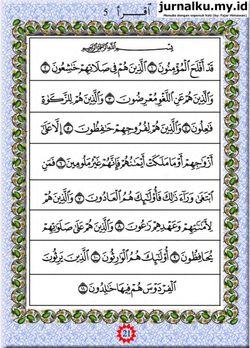 jurnalku.my.id
اقرأ 5
بِسْمِ اللَّهِ الرَّحْمَٰنِ الرَّحِيمِ
قَدْ أَفْلَحَ الْمُؤْمِنُونَ ١ الَّذِينَ هُمْ فِي صَلَاتِهِمْ خَٰشِعُونَ ٢
وَالَّذِينَ هُمْ عَنِ اللَّغْوِ مُعْرِضُونَ ٣ وَالَّذِينَ هُمْ لِلزَّكَوٰةِ
فَٰعِلُونَ ٤ وَالَّذِينَ هُمْ لِفُرُوجِهِمْ حَٰفِظُونَ ٥ إِلَّا عَلَىٰ
أَزْوَٰجِهِمْ أَوْ مَا مَلَكَتْ أَيْمَٰنُهُمْ فَإِنَّهُمْ غَيْرُ مَلُومِينَ ٦ فَمَنِ
ابْتَغَىٰ وَرَاءَ ذَٰلِكَ فَأُولَٰئِكَ هُمُ الْعَادُونَ ٧ وَالَّذِينَ هُمْ
لِأَمَٰنَٰتِهِمْ وَعَهْدِهِمْ رَٰعُونَ ٨ وَالَّذِينَ هُمْ عَلَىٰ صَلَوَٰتِهِمْ
يُحَافِظُونَ ٩ أُولَٰئِكَ هُمُ الْوَٰرِثُونَ ١٠ الَّذِينَ يَرِثُونَ
الْفِرْدَوْسَ هُمْ فِيهَا خَٰلِدُونَ ١١
21